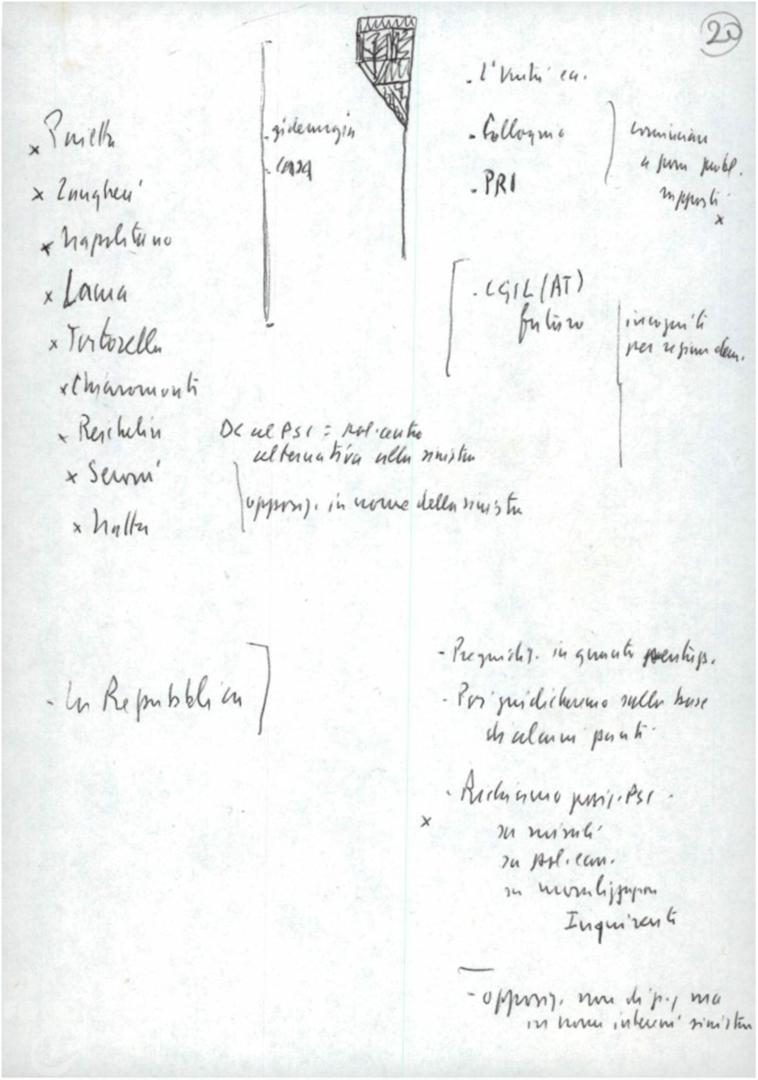 20
x Pajetta
x Zangheri
x Napolitano
x Lama
x Tortorella
x Chiaromonti
x Reichlin
x Seroni
x Natta
- siderurgia
-
- L'Unità ec.
- Colloquio
- PRI
cominciare
a porre probl.
rapporti
x
- CGIL (AT)
futuro
incogniti
per regime dem.
DC al PSI = pol. centro
alternativa alla sinistra
opposiz. in nome della sinistra
- La Repubblica
- Pregiudiz. in quanto pentap.
- Poi giudicheremo sulla base
di alcuni punti
- Richiamo posiz. PSI -
x
su missili
su pol. econ.
su moralizzazion
Inquirenti
- opposiz. non di p., ma
in nome interessi sinistra